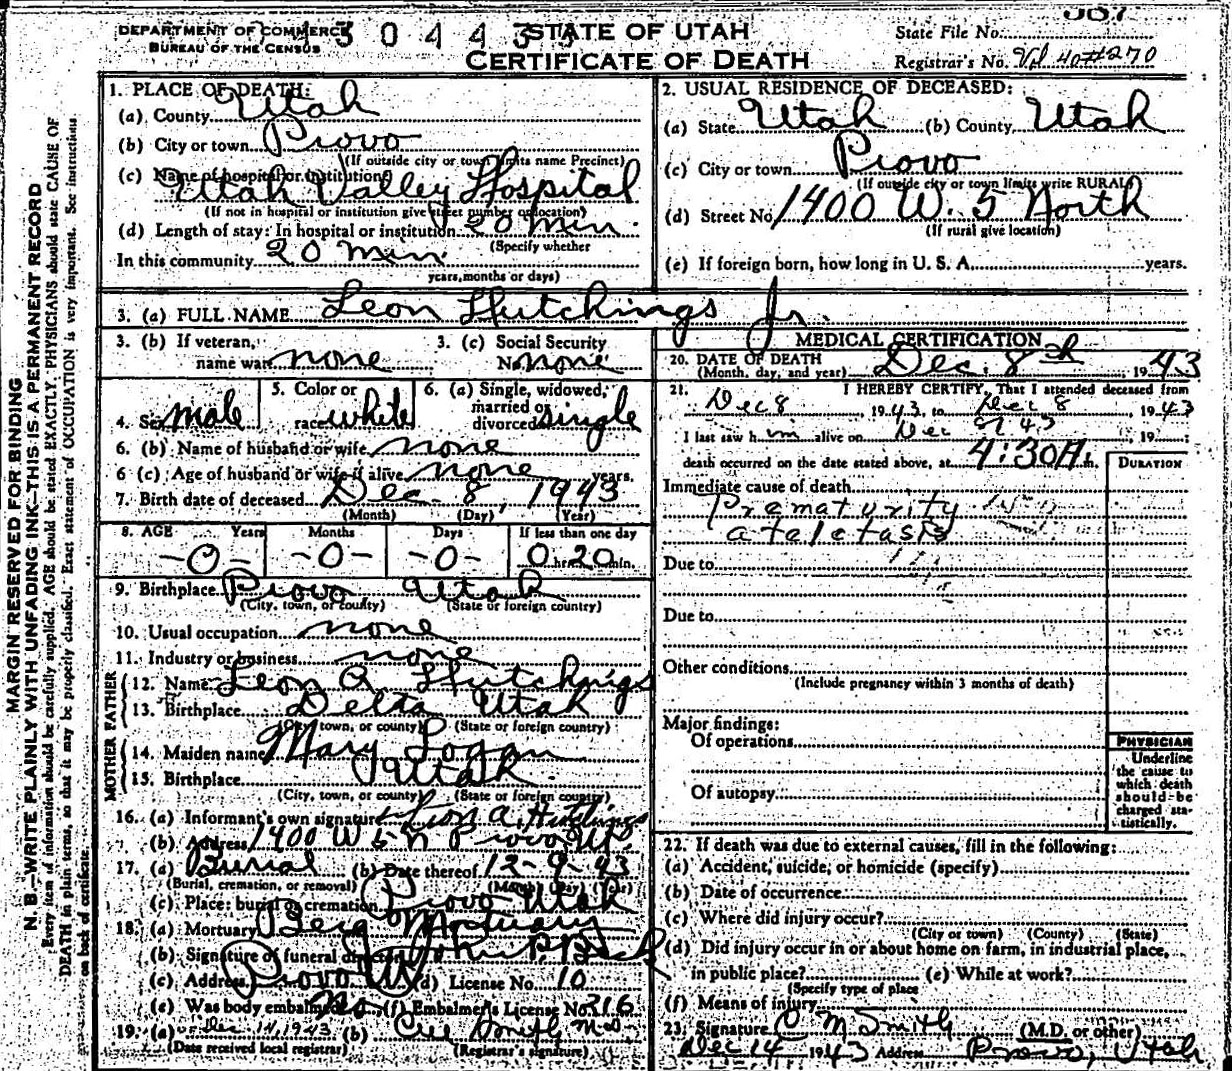 DEPARTMENT OF COMMERCE
BUREAU OF THE CENSUS
STATE OF UTAH
CERTIFICATE OF DEATH
State File No.
Registrar's No. Vol 40 #270
MARGIN RESERVED FOR BINDING
N. B.—WRITE PLAINLY WITH UNFADING INK—THIS IS A PERMANENT RECORD
Every item of information should be carefully supplied. AGE should be stated EXACTLY. PHYSICIANS should state CAUSE OF
DEATH in plain terms, so that it may be properly classified. Exact statement of OCCUPATION is very important. See instructions
on back of certificate.
1. PLACE OF DEATH:
(a) County Utah
(b) City or town Provo
(If outside city or town limits name Precinct)
(c) Name of hospital or institution:
Utah Valley Hospital
(If not in hospital or institution give street number or location)
(d) Length of stay: In hospital or institution 20 min.
(Specify whether
In this community 20 min.
years, months or days)
2. USUAL RESIDENCE OF DECEASED:
(a) State Utah (b) County Utah
(c) City or town Provo
(If outside city or town limits write RURAL)
(d) Street No. 1400 W. 5 North
(If rural give location)
(e) If foreign born, how long in U. S. A. years.
3. (a) FULL NAME Leon Hutchings Jr.
3. (b) If veteran, name war none
3. (c) Social Security No. none
4. Sex male
5. Color or race white
6. (a) Single, widowed, married or divorced single
6. (b) Name of husband or wife none
6 (c) Age of husband or wife if alive none years.
7. Birth date of deceased Dec. 8, 1943
(Month) (Day) (Year)
8. AGE Years Months Days If less than one day
-0- -0- -0- 0 hr. 20 min.
9. Birthplace Provo Utah
(City, town, or county) (State or foreign country)
10. Usual occupation none
11. Industry or business none
FATHER
12. Name Leon A Hutchings
13. Birthplace Delta Utah
(City, town, or county) (State or foreign country)
MOTHER
14. Maiden name Mary Logan
15. Birthplace Utah
(City, town, or county) (State or foreign country)
16. (a) Informant's own signature Leon A. Hutchings
(b) Address 1400 W 5 N Provo, Ut.
17. (a) Burial (b) Date thereof 12-9-43
(Burial, cremation, or removal) (Month) (Day) (Year)
(c) Place: burial or cremation Provo Utah
18. (a) Mortuary Berg Mortuary
(b) Signature of funeral director John P.
(c) Address Provo Ut (d) License No. 10
(e) Was body embalmed (f) Embalmer's License No. 316
19. (a) Dec 14, 1943 (b) Smith M.D.
(Date received local registrar) (Registrar's signature)
MEDICAL CERTIFICATION
20. DATE OF DEATH
(Month, day, and year) Dec. 8th, 1943
21. I HEREBY CERTIFY, That I attended deceased from
Dec 8, 1943, to Dec 8, 1943
I last saw him alive on Dec 43, 19
death occurred on the date stated above, at 4:30 A. m.
DURATION
Immediate cause of death
Prematurity
atelectasis
Due to
Due to
Other conditions
(Include pregnancy within 3 months of death)
Major findings:
Of operations
Of autopsy
PHYSICIAN
Underline
the cause to
which death
should be
charged sta-
tistically.
22. If death was due to external causes, fill in the following:
(a) Accident, suicide, or homicide (specify)
(b) Date of occurrence
(c) Where did injury occur?
(City or town) (County) (State)
(d) Did injury occur in or about home on farm, in industrial place,
in public place? (e) While at work?
(Specify type of place
(f) Means of injury
23. Signature C M Smith (M.D. or other)
Dec 14 1943 Address Provo, Utah